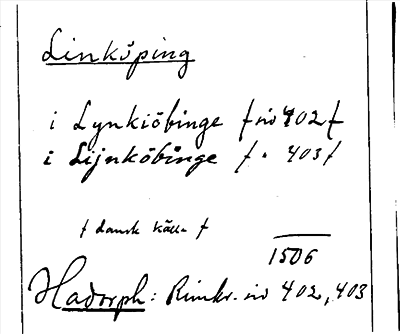 Linköping
i Lynkiöbinge f nö 402 f
i Lijnköbinge f. " 403 f
f dansk källa f
1506
Hadorph: Rimkr. nö 402, 403